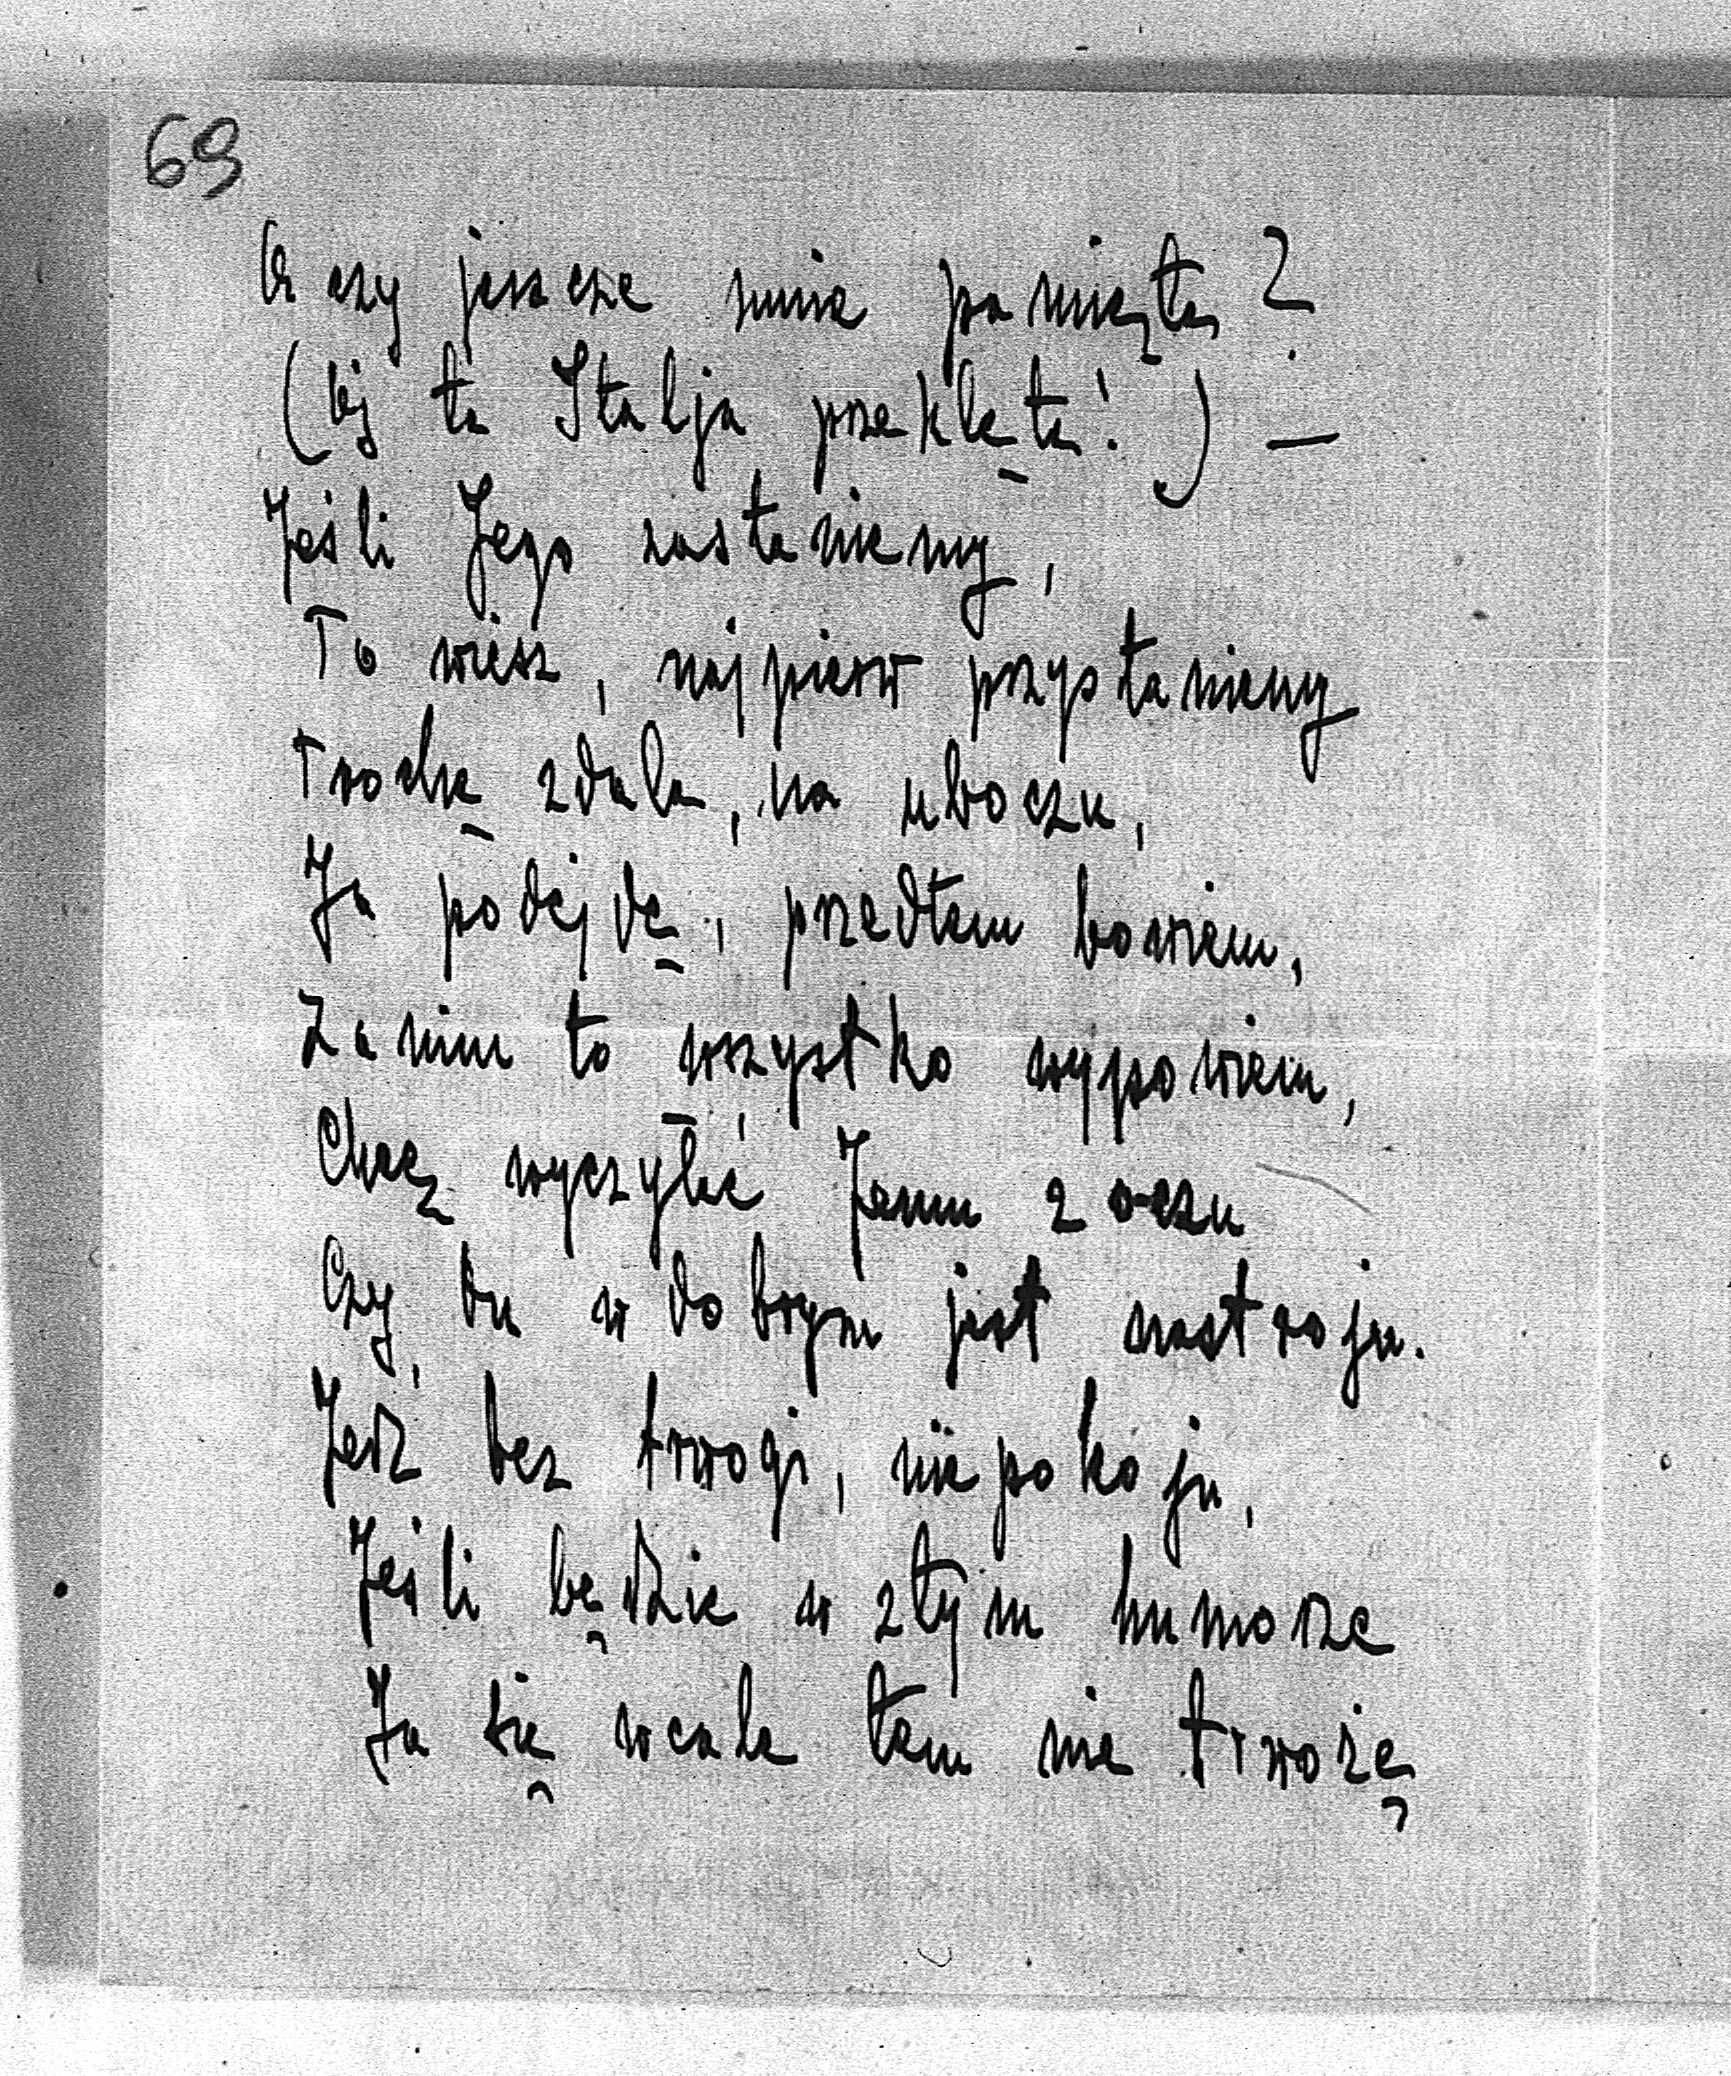 69
A czy jeszcze mnie pamięta?
(Ej ta Italja przeklęta!) —
Jeśli Jego zastaniemy,
To wiesz, najpierw przystaniemy
Trochę zdala, na uboczu,
Ja podejdę, przedtem bowiem,
Zanim to wszystko wypowiem,
Chcę wyczytać Jemu z oczu
Czy, w dobrym jest nastroju.
Jedź bez trwogi, niepokoju,
Jeśli będzie w złym humorze
Ja się wcale tem nie trwożę